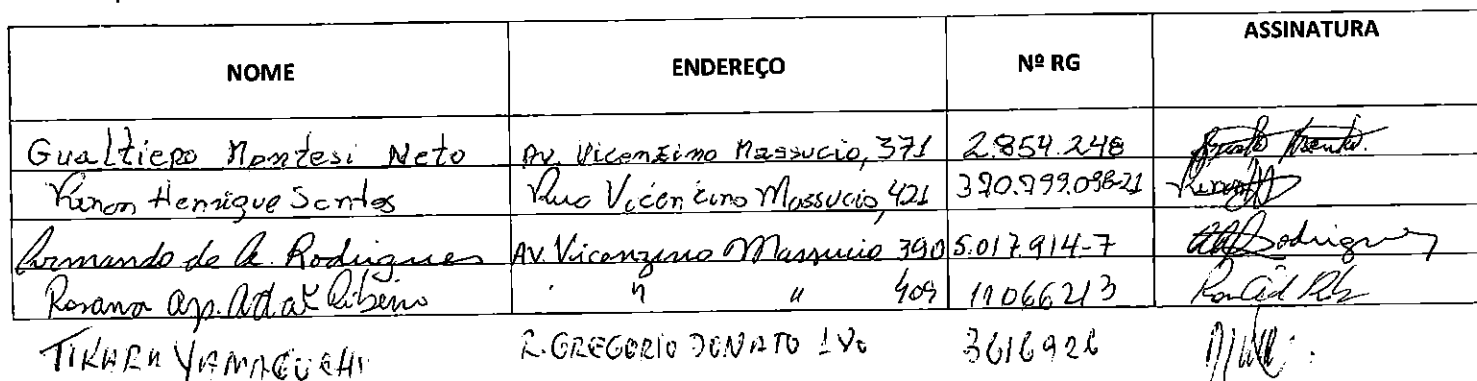 NOME ENDEREÇO Nº RG ASSINATURA
Gualtiero Montesi Neto Av. Vicenzino Massucio, 371 2.854.248
Henrique Santos Rua Vicenzino Massucio, 421 370.799.098-21
Armando de A. Rodrigues Av. Vicenzino Massucio 390 5.017.914-7
Rosana Ap. Ribeiro " " 409 11066213
TIKARA YAMAGUCHI R. GREGORIO DONATO 3616926